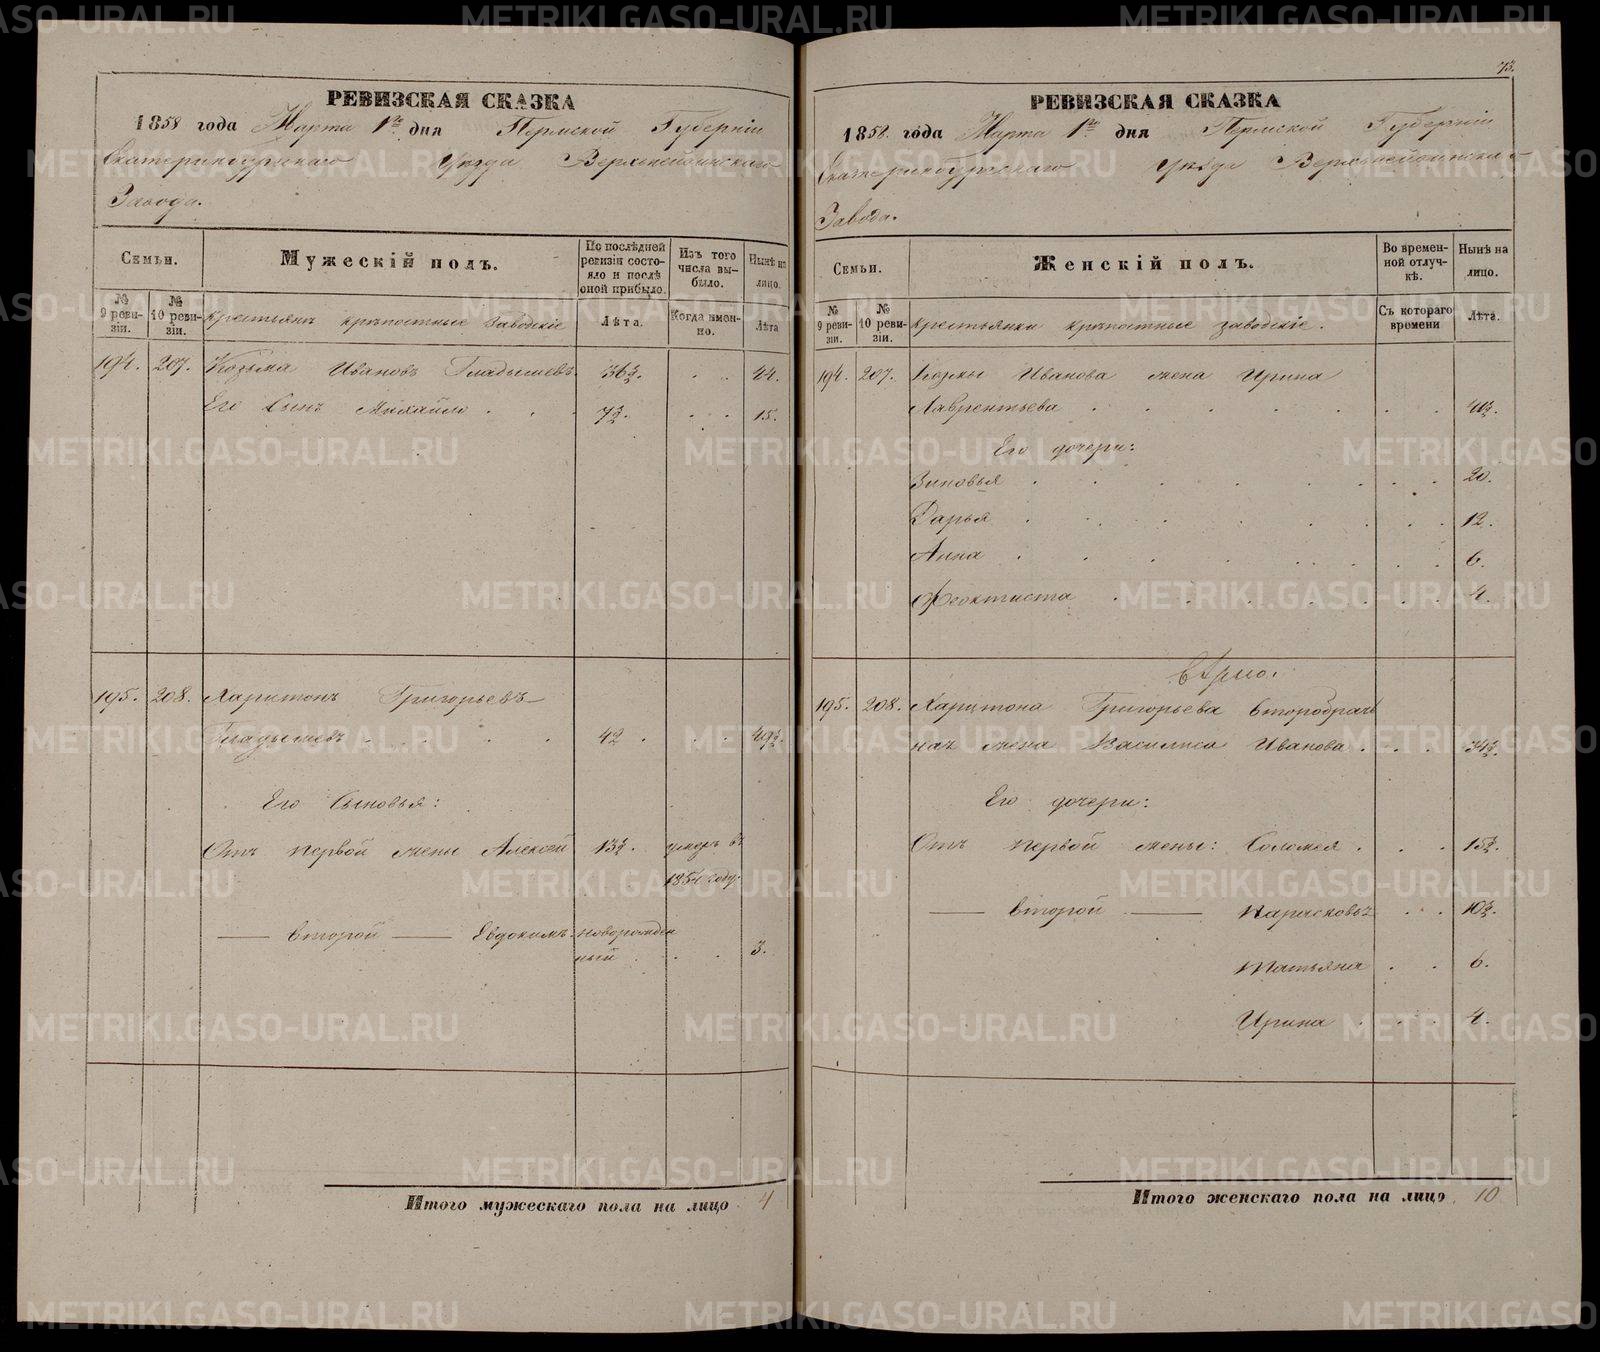 РЕВИЗСКАЯ СКАЗКА
1858 года Марта 1го дня Пермской Губерніи
Екатеринбургскаго Уѣзда Верхнейвинскаго
Завода.
Семьи.
Мужескій полъ.
По послѣдней ревизіи состояло и послѣ оной прибыло.
Изъ того числа выбыло.
Нынѣ на лицо.
№ 9 ревизіи.
№ 10 ревизіи.
Крестьянъ крѣпостные заводскіе
Лѣта.
Когда именно.
Лѣта
194. 207. Козьма Ивановъ Гладышевъ 36½. . . 44.
Его Сынъ Михайло . . . 7½. . . 15.
195. 208. Харитонъ Григорьевъ
Гладышевъ . . . . 42 . . . 49½.
Его Сыновья:
Отъ первой жены Алексѣй 13½. умеръ въ
1854 году.
— второй — Евдокимъ. новорожден
ный . . . 3.
Итого мужескаго пола на лицо 4
73.
РЕВИЗСКАЯ СКАЗКА
1858. года Марта 1го дня Пермской Губерніи
Екатеринбургскаго Уѣзда Верхнейвинскаго
Завода.
Семьи.
Женскій полъ.
Во временной отлучкѣ.
Нынѣ на лицо.
№ 9 ревизіи.
№ 10 ревизіи.
Крестьянки крѣпостные заводскіе.
Съ котораго времени
Лѣта.
194. 207. Козмы Иванова жена Ирина
Лаврентьева . . . . . . . 41½.
Его дочери:
Зиновья . . . . . . . 20.
Дарья . . . . . . . 12.
Анна . . . . . . . 6.
Феоктиста . . . . . . . 4.
195. 208. Харитона Григорьева второбрач
ная жена Василиса Иванова . . . 34½.
Его дочери:
Отъ первой жены: Соломея . . . 15½.
— второй — Парасковья . . . 10½.
Татьяна . . 6.
Ирина . . . 4.
Итого женскаго пола на лицо 10
METRIKI.GASO-URAL.RU